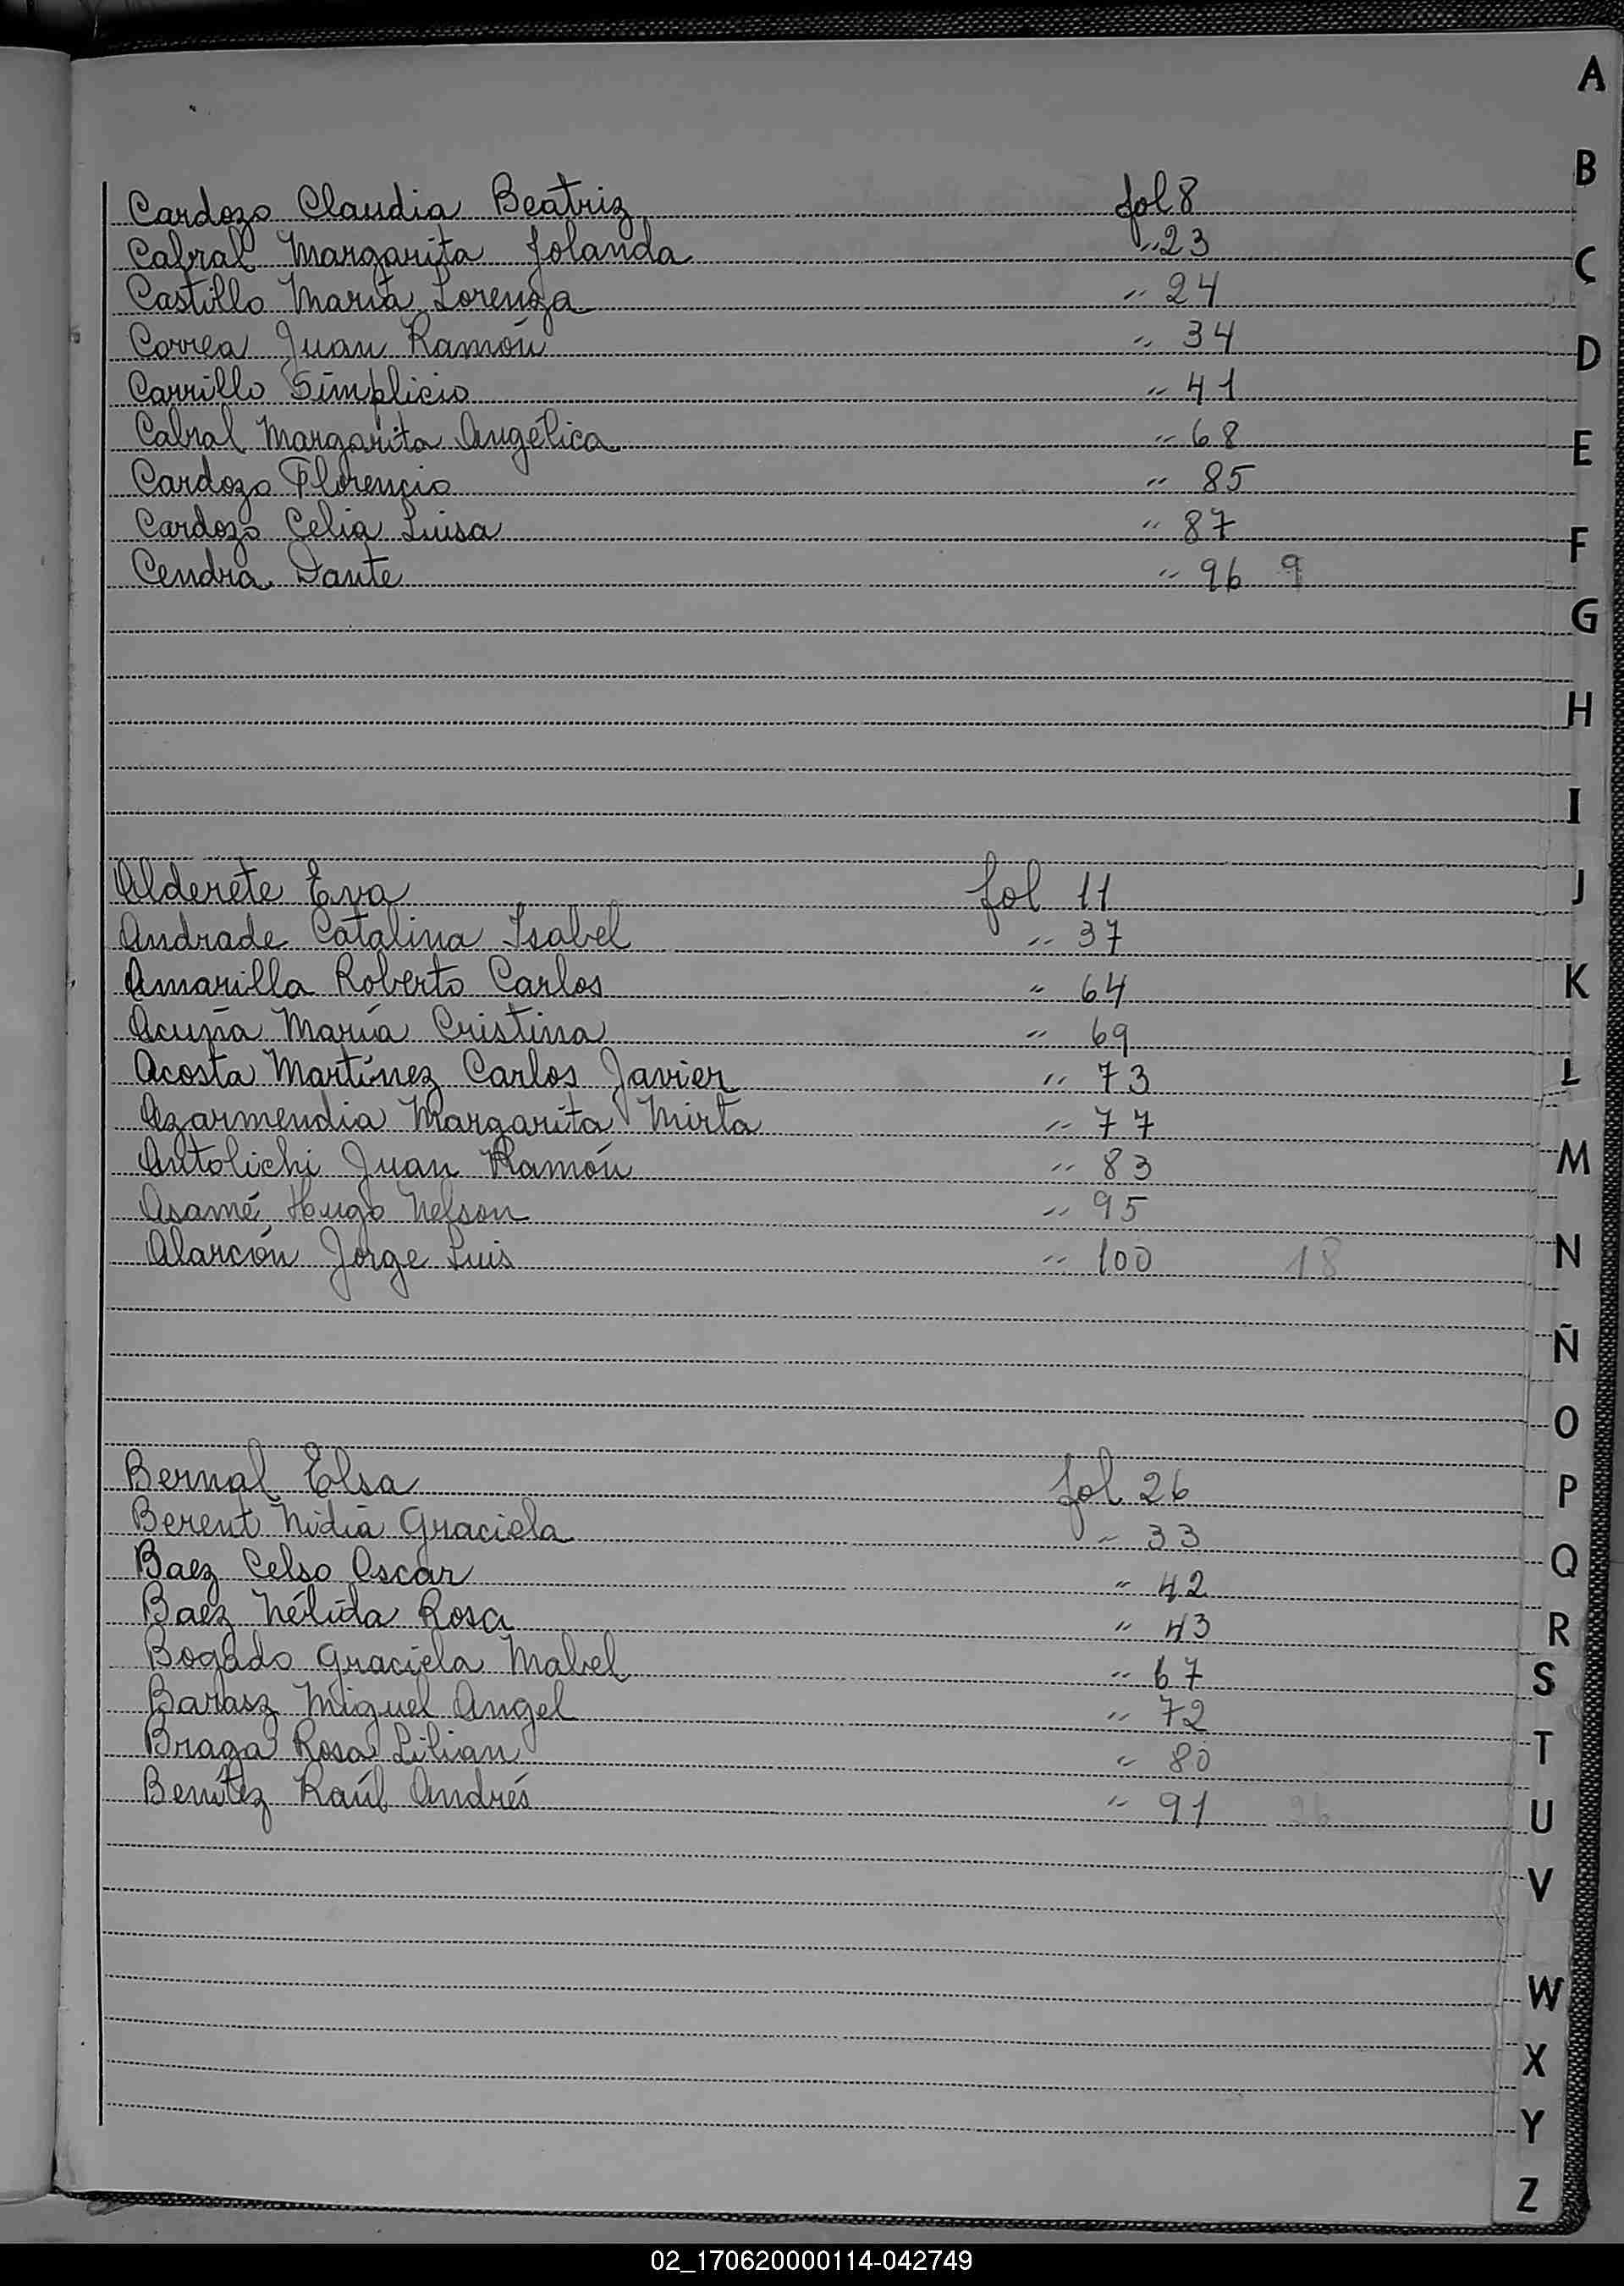 Cardozo Claudia Beatriz fol 8
Cabral Margarita Jolanda " 23
Castillo María Lorenza " 24
Correa Juan Ramón " 34
Carrillo Simplicio " 41
Cabral Margarita Angélica " 68
Cardozo Florencio " 85
Cardozo Celia Luisa " 87
Cendra Dante " 96 9
Alderete Eva fol 11
Andrade Catalina Isabel " 37
Amarilla Roberto Carlos " 64
Acuña María Cristina " 69
Acosta Martínez Carlos Javier " 73
Azarmendia Margarita Mirta " 77
Antolichi Juan Ramón " 83
Asamé, Hugo Nelson " 95
Alarcón Jorge Luis " 100 18
Bernal Elsa fol 26
Berent Nidia Graciela " 33
Baez Celso Oscar " 42
Baez Nélida Rosa " 43
Bogado Graciela Mabel " 67
Barasz Miguel Angel " 72
Braga Rosa Lilian " 80
Benítez Raúl Andrés " 91 26
A
B
C
D
E
F
G
H
I
J
K
L
M
N
Ñ
O
P
Q
R
S
T
U
V
W
X
Y
Z
02_170620000114-042749